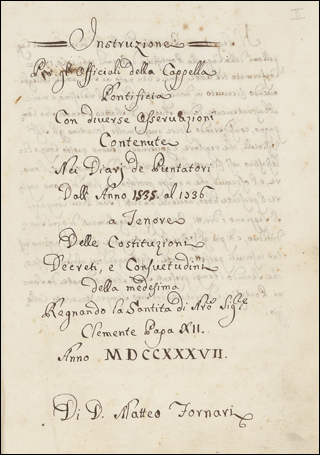 Instruzione
Per gli Officiali della Cappella
Pontificia
Con diverse Osservazioni
Contenute
Nei Diarj de Puntatori
Dall' Anno 1535. al 1536
a Tenore
Delle Costituzioni
Decreti, e Consuetudini
della medesima
Regnando la Santita di Nro Sigre
Clemente Papa XII.
Anno MDCCXXXVII.
Di D. Matteo Fornari